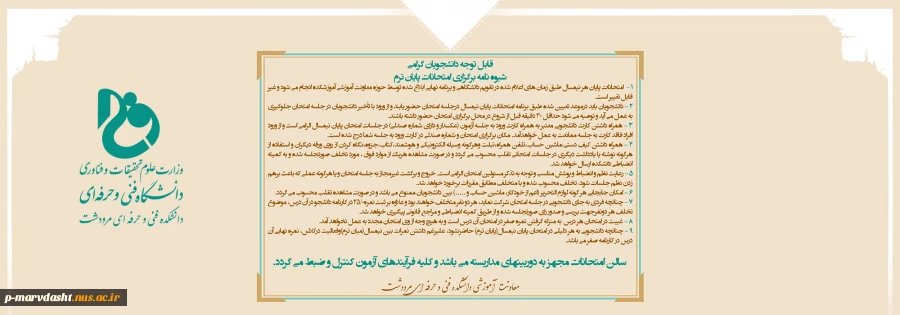 قابل توجه دانشجویان گرامی
شیوه نامه برگزاری امتحانات پایان ترم
۱- امتحانات پایان هر نیمسال طبق زمان های اعلام شده در تقویم دانشگاهی و برنامه نهایی ابلاغ شده توسط حوزه معاونت آموزشی آموزشکده انجام می شود و غیر
قابل تغییر است.
۲- دانشجویان باید در موعد تعیین شده طبق برنامه امتحانات پایان نیمسال در جلسه امتحان حضور یابند و از ورود با تأخیر دانشجویان در جلسه امتحان جلوگیری
به عمل می آید و توصیه می شود حداقل ۳۰ دقیقه قبل از شروع در محل برگزاری امتحان حضور داشته باشند.
۳- همراه داشتن کارت دانشجویی معتبر به همراه کارت ورود به جلسه آزمون (عکسدار و دارای شماره صندلی) در جلسات امتحان پایان نیمسال الزامی است و از ورود
افراد فاقد کارت به جلسه ممانعت به عمل خواهد آمد. مکان برگزاری امتحان و شماره صندلی در کارت ورود به جلسه شما درج شده است.
۴- همراه داشتن کیف دستی، ماشین حساب، تلفن همراه، تبلت و هرگونه وسیله الکترونیکی و هوشمند، کتاب، جزوه، نگاه کردن از روی ورقه دیگران و استفاده از
هرگونه نوشته یا یادداشت دیگری در جلسات امتحانی تقلب محسوب می گردد و در صورت مشاهده هر یک از موارد فوق ، مورد تخلف صورتجلسه شده و به کمیته
انضباطی دانشکده ارسال خواهد شد.
۵- رعایت نظم و انضباط و پوشش مناسب و توجه به تذکر مسئولین امتحان الزامی است. خروج و برگشت غیرمجاز به جلسه امتحان و یا هرگونه عملی که باعث برهم
زدن نظم جلسات شود، تخلف محسوب شده و با متخلف مطابق مقررات برخورد خواهد شد.
۶- امکان جابجایی هر گونه لوازم التحریر (اعم از خودکار، ماشین حساب و .....) بین دانشجویان ممنوع می باشد و در صورت مشاهده تقلب محسوب می گردد.
۷- چنانچه فردی به جای دانشجویی در جلسه امتحان شرکت نماید، هر دو نفر متخلف خواهند بود و علاوه بر ثبت نمره ۰/۲۵ در کارنامه دانشجو در آن درس، موضوع
تخلف هر دو نفر جهت بررسی و صدور رای صورتجلسه شده و از طریق کمیته انضباطی و مراجع قانونی پیگیری خواهد شد.
۸- غیبت در امتحان هر درس به منزله گرفتن نمره صفر در امتحان آن درس است و به هیچ وجه از وی امتحان مجدد به عمل نخواهد آمد.
۹- چنانچه دانشجویی به هر دلیلی در امتحان پایان نیمسال (پایان ترم) حاضر نشود، علیرغم داشتن نمرات بین نیمسال (میان ترم) و فعالیت در کلاس، نمره نهایی آن
درس در کارنامه صفر می باشد.
سالن امتحانات مجهز به دوربینهای مداربسته می باشد و کلیه فرآیندهای آزمون کنترل و ضبط می گردد.
معاونت آموزشی دانشکده فنی و حرفه ای مرودشت
وزارت علوم تحقیقات و فناوری
دانشگاه فنی و حرفه ای
دانشکده فنی و حرفه ای مرودشت
p-marvdasht.nus.ac.ir